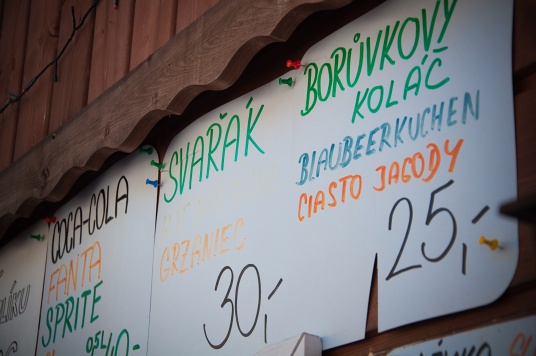 COCA-COLA
FANTA
SPRITE
0,5L 40,-
SVAŘÁK
GRZANIEC
30,-
BORŮVKOVÝ
KOLÁČ
BLAUBEERKUCHEN
CIASTO JAGODY
25,-